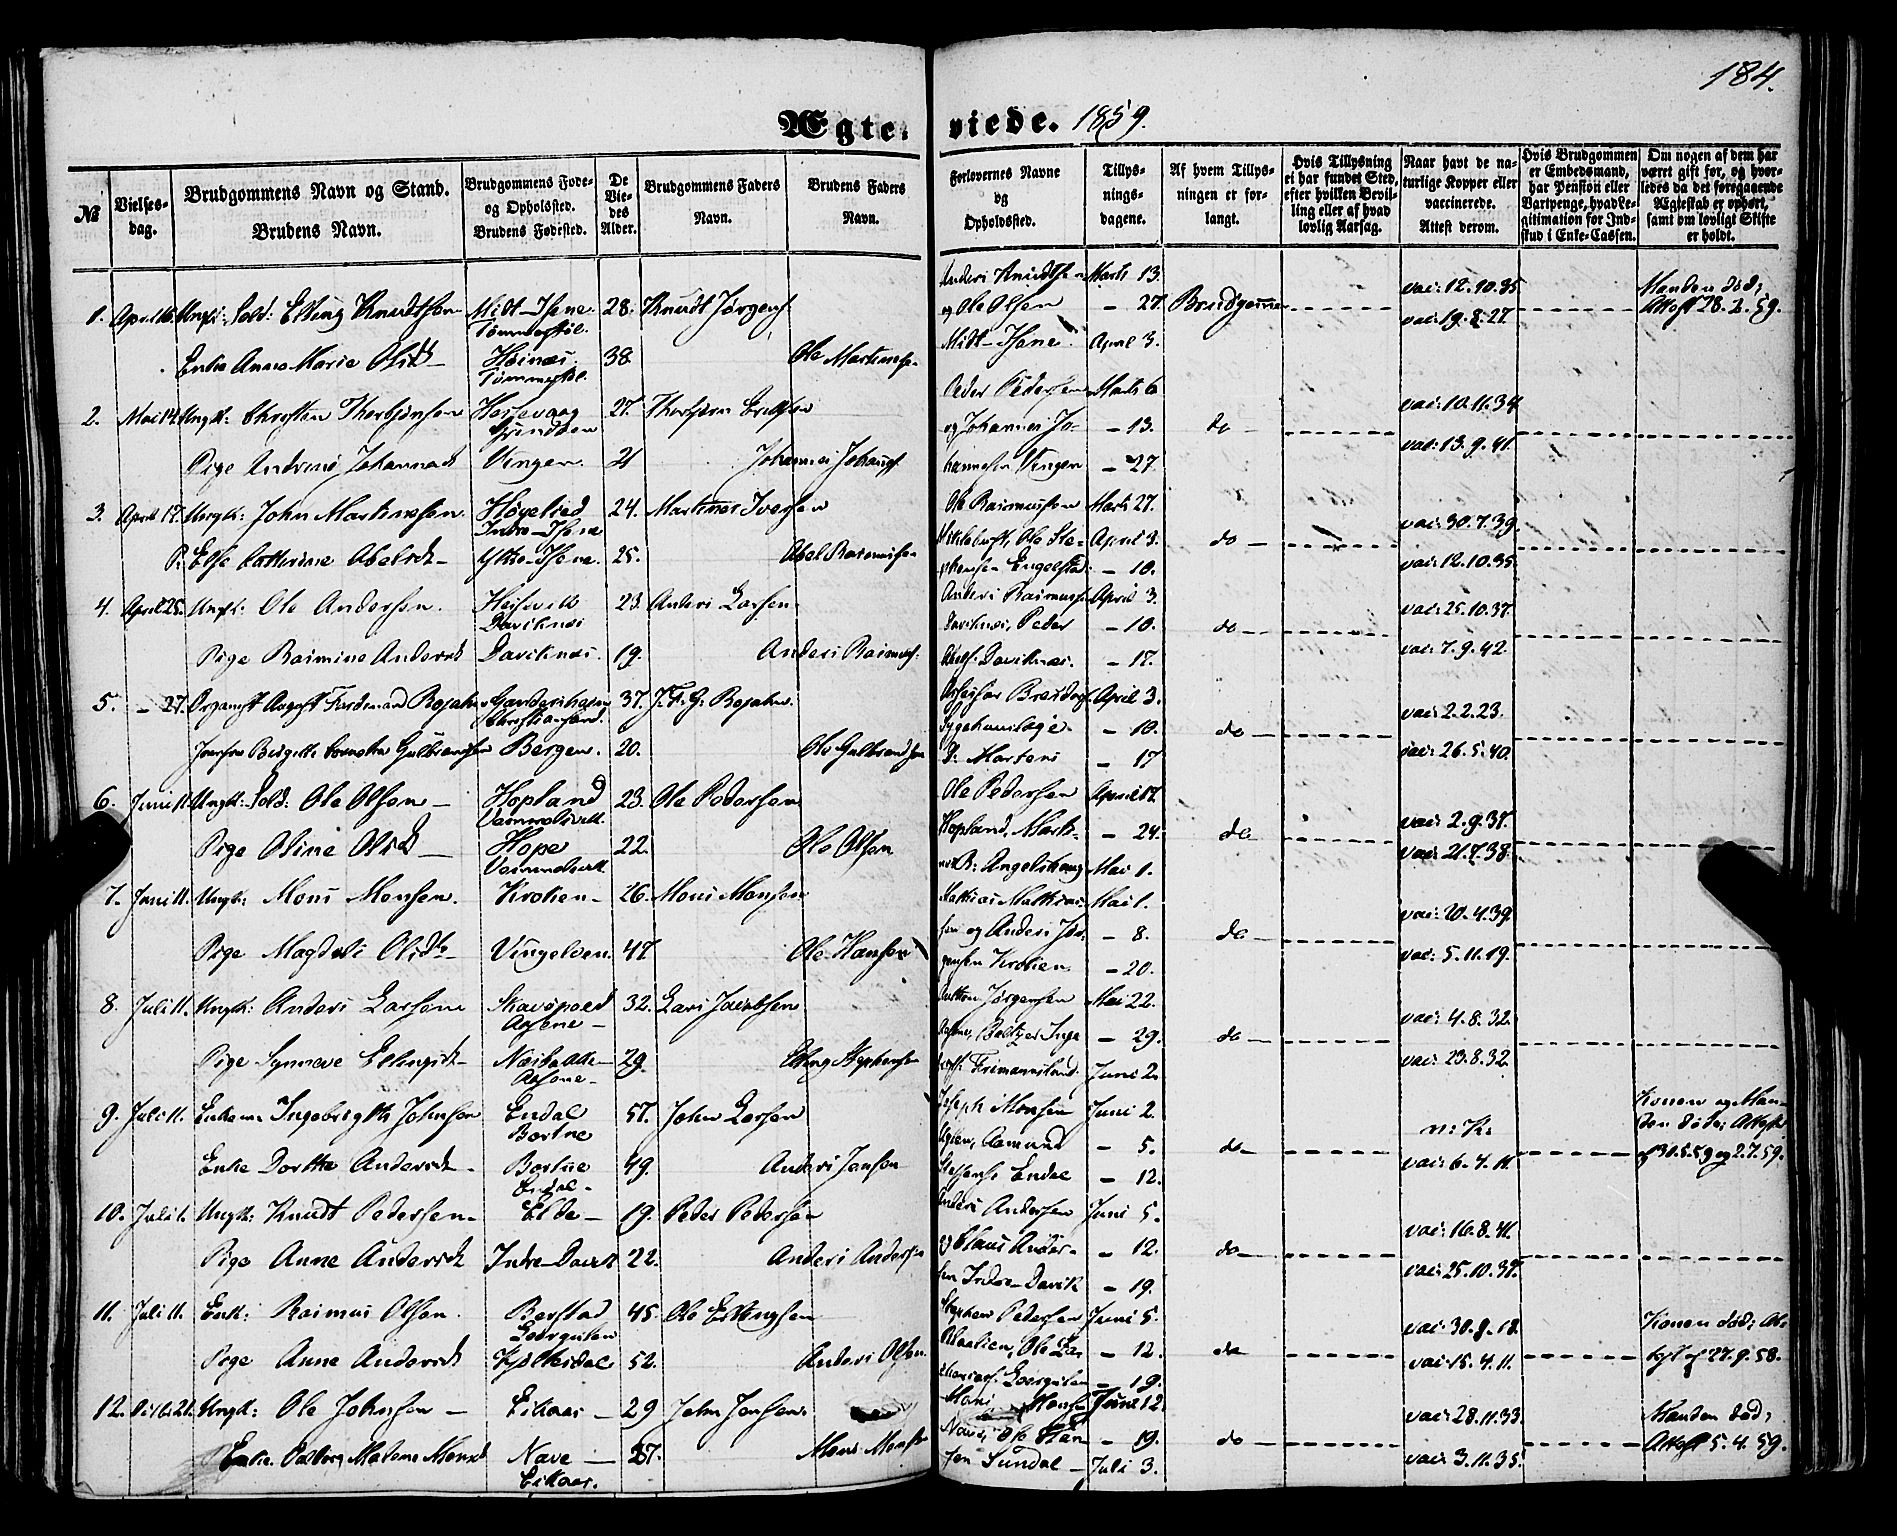 184.
Ægteviede. 1859.
№
Vielses-
dag.
Brudgommens Navn og Stand.
Brudens Navn.
Brudgommens Føde-
og Opholdsted.
Brudens Fødested.
De
Vie-
des
Alder.
Brudgommens Faders
Navn.
Brudens Faders
Navn.
Forlovernes Navne
og
Opholdssted.
Tillys-
nings-
dagene.
Af hvem Tillys-
ningen er for-
langt.
Hvis Tillysning
ei har fundet Sted,
efter hvilken Bevil-
ling eller af hvad
lovlig Aarsag.
Naar havt de na-
turlige Kopper eller
vaccinerede.
Attest derom.
Hvis Brudgommen
er Embedsmand,
har Pension eller
Vartpenge, hvad Le-
gitimation for Ind-
skud i Enke-Cassen.
Om nogen af dem har
været gift før, og hvor-
ledes da det foregaaende
Ægteskab er ophørt,
samt om lovligt Skifte
er holdt.
1. April 16. Ungk: Sold: Elling Knudtsen Midt-Hene 28. Knudt Jørgens.
Enke Anne Marie Olsd. 38. Ole Martinsen
Anders Knudtsen Marts 13.
og Ole Olsen – 27. Brudgommen
Midt-Hene. April 3.
vac: 12.10.35
vac: 19.8.27.
Manden død;
Attest 28.2.59.
2. Mai 14. Ungk: Christen Thorbjønsen 27.
Pige Andrine Johannesd. Vingen 21 Johannes Johans.
Peder Pedersen Marts 6
og Johannes Jo- – 13. do
hannesen Vingen – 27.
vac: 10.11.34
vac: 13.9.41.
3. April 17. Ungk: John Martinussen 24. Martinus Iversen
P. Else Catherine Abelsd. Ytre-Hene. 25. Abel Rasmussen
Ole Rasmussen Marts 27.
Ole Ste- April 3. do
phensen – 10.
vac: 30.7.39.
vac: 12.10.35.
4. April 25. Ungk: Ole Andersen. 23. Anders Larsen
Daviknæs
Pige Rasmine Andersd. Daviknæs. 19. Anders Rasmus.
Anders Rasmussen April 3.
Daviknæs, Peder – 10. do
Abels. Daviknæs. – 17.
vac: 25.10.37.
vac: 7.9.42.
5. – 27. Organist August Ferdinand Rojahn 37. J. F. G. Rojahn.
Christiansand.
Jomfru Birgitte Gulbransen Bergen. 20. Ole Gulbrandsen
April 3.
– 10. do
D. Martens – 17
vac: 2.2.23.
vac: 26.5.40.
6. Juni 11. Ungk: Sold: Ole Olsen – Hopland 23. Ole Pedersen
Pige Oline Olsd. Hope 22. Ole Olsen
Ole Pedersen April 17.
Hopland, Marti- – 24. do
Mai 1.
vac: 2.9.37.
vac: 21.7.38.
7. Juni 11. Ungk: Mons Monsen. Kroken – 26. Mons Monsen
Pige Magdeli Olsd. Vingelven 47. Ole Hansen
Mathias Mathias- Mai 1.
sen og Anders Jør- – 8. do
gensen Kroken. – 20.
vac: 20.4.39.
vac: 5.11.19.
8. Juli 11. Ungk: Anders Larsen 32. Lars Jacobsen
Pige Synneve Ellingsd. 29. Elling Stephensen
Jørgensen Mai 22.
– 29. do
Juni 2.
vac: 4.8.32.
vac: 23.8.32.
9. Juli 11. Enkem. Ingebrigth Johnsen Endal 57. John Larsen
Bortne
Enke Dorthe Andersd. Bortne 49. Anders Jonsen
Endal –
Joseph Monsen Juni 2.
Aamund – 5. do
Endal – 12.
n: K:
vac: 6.4.11.
Konen og Man-
den døde; Attest
af 31.5.59 og 2.7.59.
10. Juli 1. Ungk: Knudt Pedersen. Elde – 19. Peder Pedersen
Pige Anne Andersd. Indre-Davik 22. Anders Andersen
Anders Andersen Juni 5.
og Claus Ander- – 12. do
sen Indre-Davik – 19.
vac: 16.8.41.
vac: 25.10.37.
11. Juli 11. Enk: Rasmus Olsen. Berstad 45. Ole Ellingsen
Pige Anne Andersd. 52. Anders Olsen.
Stephen Pedersen Juni 5.
Ole Za- – 12. do
charias. – 19.
vac: 30.8.18.
vac: 15.4.11.
Konen død; At-
test af 27.9.58.
12. Octbr 21. Ungk: Ole Johnsen – Eikaas – 29 John Jonsen.
Enke Malene Monsd. Nave – 37. Mons Monsen
Eikaas.
Mons Monsen Juni 12.
Nave, Ole Han- – 19. do
sen Sundal – Juli 3.
vac: 28.11.33.
vac: 3.11.35.
Manden død;
Attest 5.4.59.